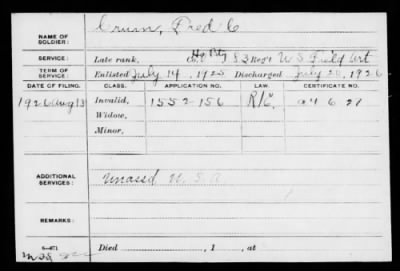 NAME OF SOLDIER: Crum, Fred C
SERVICE: Late rank, Co. Hq Bty 83 Reg't U S Field Art
TERM OF SERVICE: Enlisted July 14, 1923 Discharged July 20, 1926
DATE OF FILING. CLASS. APPLICATION NO. LAW. CERTIFICATE NO.
1926 Aug 13 Invalid, 1552 156
Widow,
Minor,
ADDITIONAL SERVICES: Unassd U. S. A
REMARKS:
Died , 1 , at